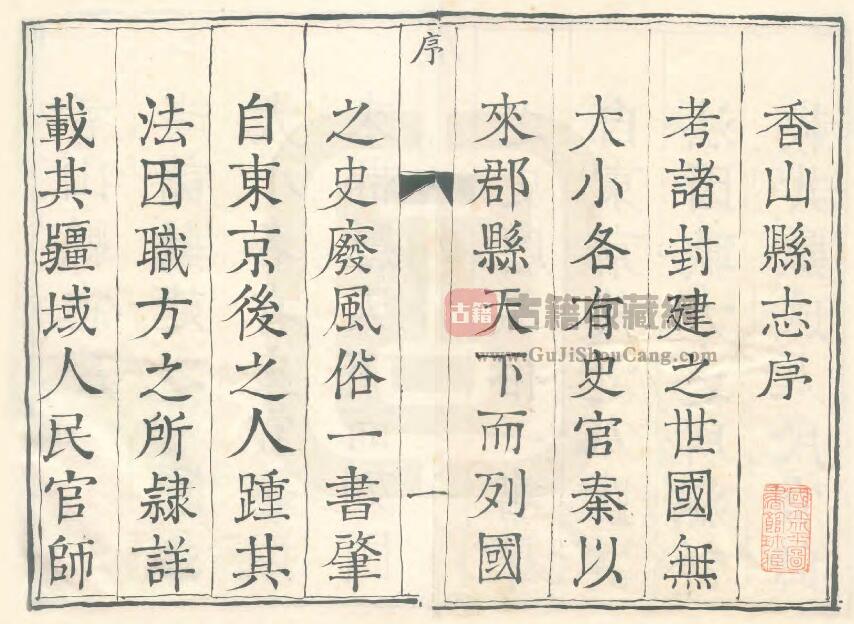 香山縣志序
考諸封建之世國無
大小各有史官秦以
來郡縣天下而列國
序
一
之史廢風俗一書肇
自東京後之人踵其
法因職方之所隷詳
載其疆域人民官師
古籍
古籍收藏
www.GuJiShouCang.com